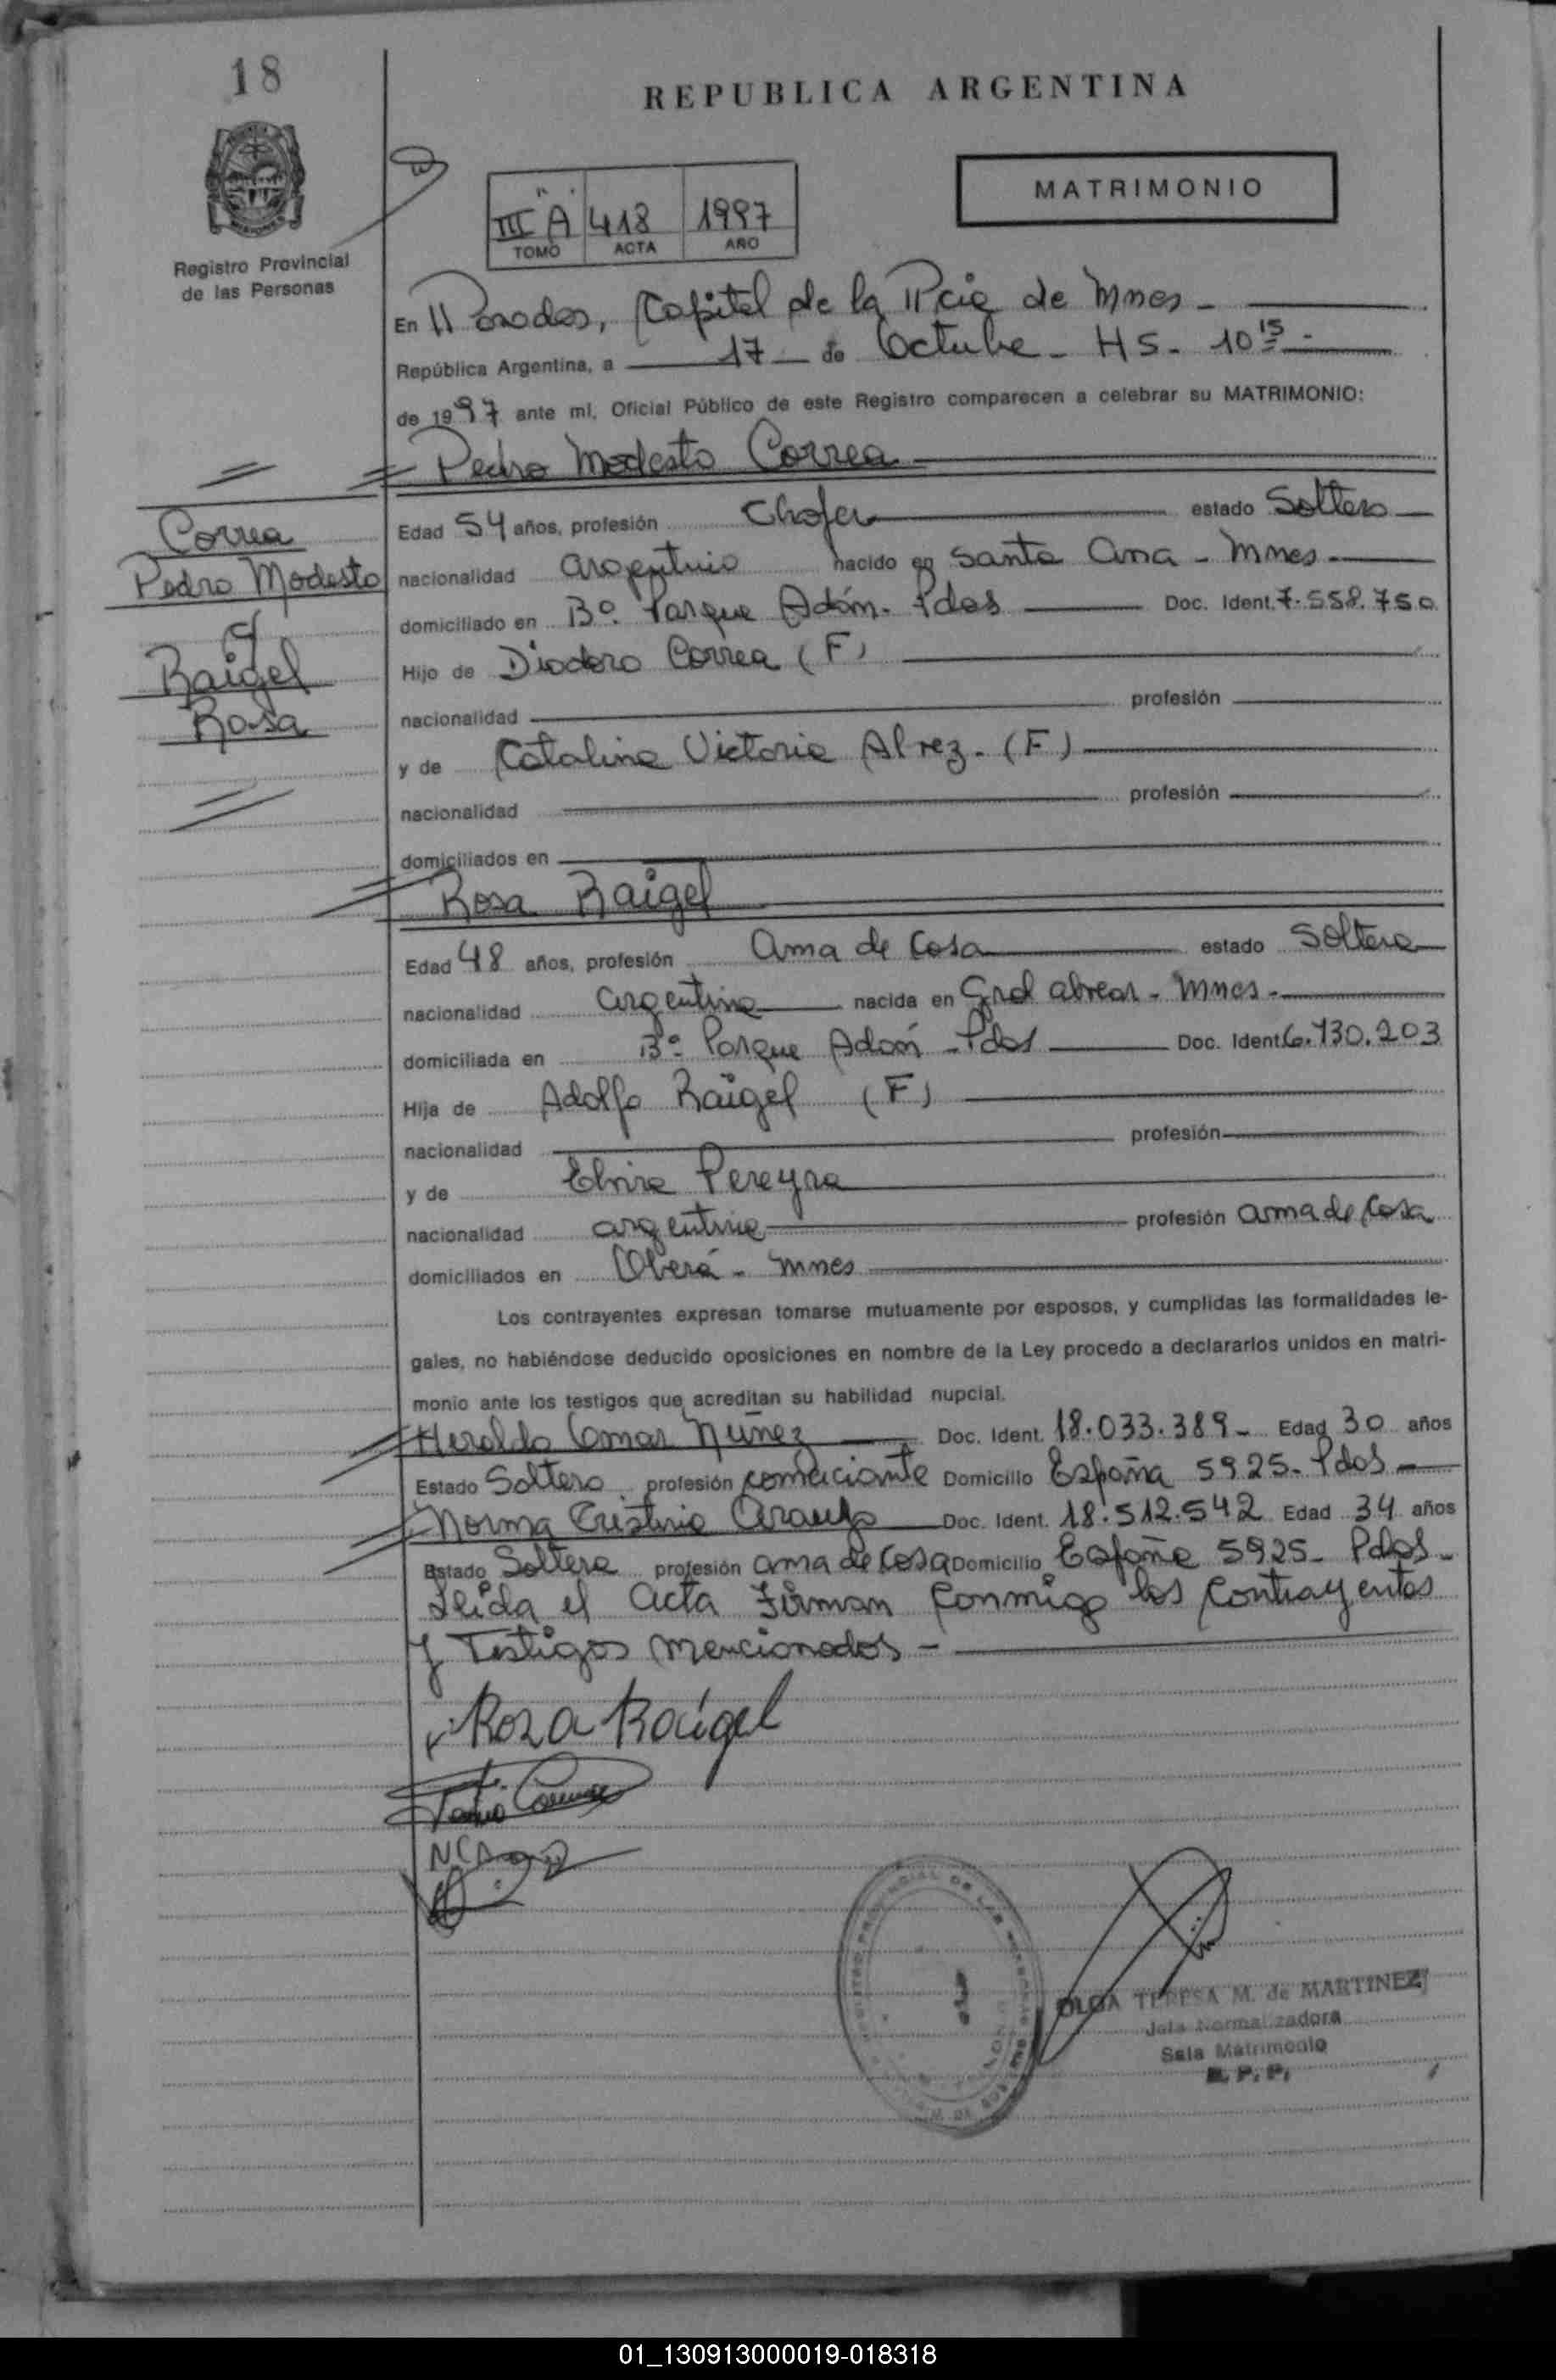 18
REPUBLICA ARGENTINA
MATRIMONIO
III "A" 418 1997
TOMO ACTA AÑO
Registro Provincial
de las Personas
En Posadas, Capital de la Pcia de Mnes -
República Argentina, a 17 de Octubre - HS. 10 15 -
de 1997 ante mí, Oficial Público de este Registro comparecen a celebrar su MATRIMONIO:
Pedro Modesto Correa
Correa
Pedro Modesto
c/
Raigel
Rosa
Edad 54 años, profesión Chofer estado Soltero
nacionalidad argentino nacido en Santa Ana - Mnes -
domiciliado en Bº. Parque Adam. Pdas Doc. Ident. 7.558.750
Hijo de Diodoro Correa (F)
nacionalidad profesión
y de Catalina Victoria Alvez. (F)
nacionalidad profesión
domiciliados en
Rosa Raigel
Edad 48 años, profesión Ama de Casa estado Soltera
nacionalidad argentina nacida en Gral Alvear - Mnes -
domiciliada en Bº Parque Adam - Pdas Doc. Ident. 6.730.203
Hija de Adolfo Raigel (F)
nacionalidad profesión
y de Elvira Pereyra
nacionalidad argentina profesión ama de Casa
domiciliados en Oberá - Mnes
Los contrayentes expresan tomarse mutuamente por esposos, y cumplidas las formalidades le-
gales, no habiéndose deducido oposiciones en nombre de la Ley procedo a declararlos unidos en matri-
monio ante los testigos que acreditan su habilidad nupcial.
Heraldo Omar Núñez Doc. Ident. 18.033.389 - Edad 30 años
Estado Soltero profesión comerciante Domicilio España 5925 - Pdas -
Norma Cristina Araujo Doc. Ident. 18.512.542 Edad 34 años
Estado Soltera profesión ama de casa Domicilio España 5925 - Pdas -
Leida el acta Firman conmigo los contrayentes
y Testigos mencionados -
Rosa Raigel
OLGA TERESA M. de MARTINEZ
Jefa Normalizadora
Sala Matrimonio
R. P. P.
01_130913000019-018318